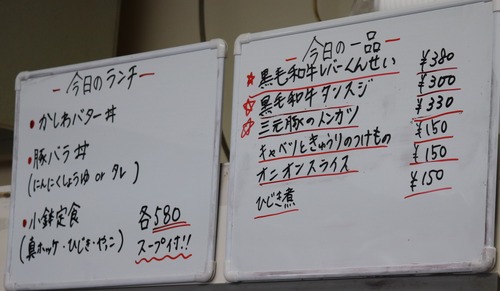 今日のランチ
かしわバター丼
豚バラ丼
(にんにくしょうゆ or タレ)
小鉢定食
各580
(真ホッケ・ひじき・やっこ)
スープ付!!
今日の一品
黒毛和牛レバーくんせい ¥380
黒毛和牛タンスジ ¥300
三元豚のトンカツ ¥330
キャベツときゅうりのつけもの ¥150
オニオンスライス ¥150
ひじき煮 ¥150